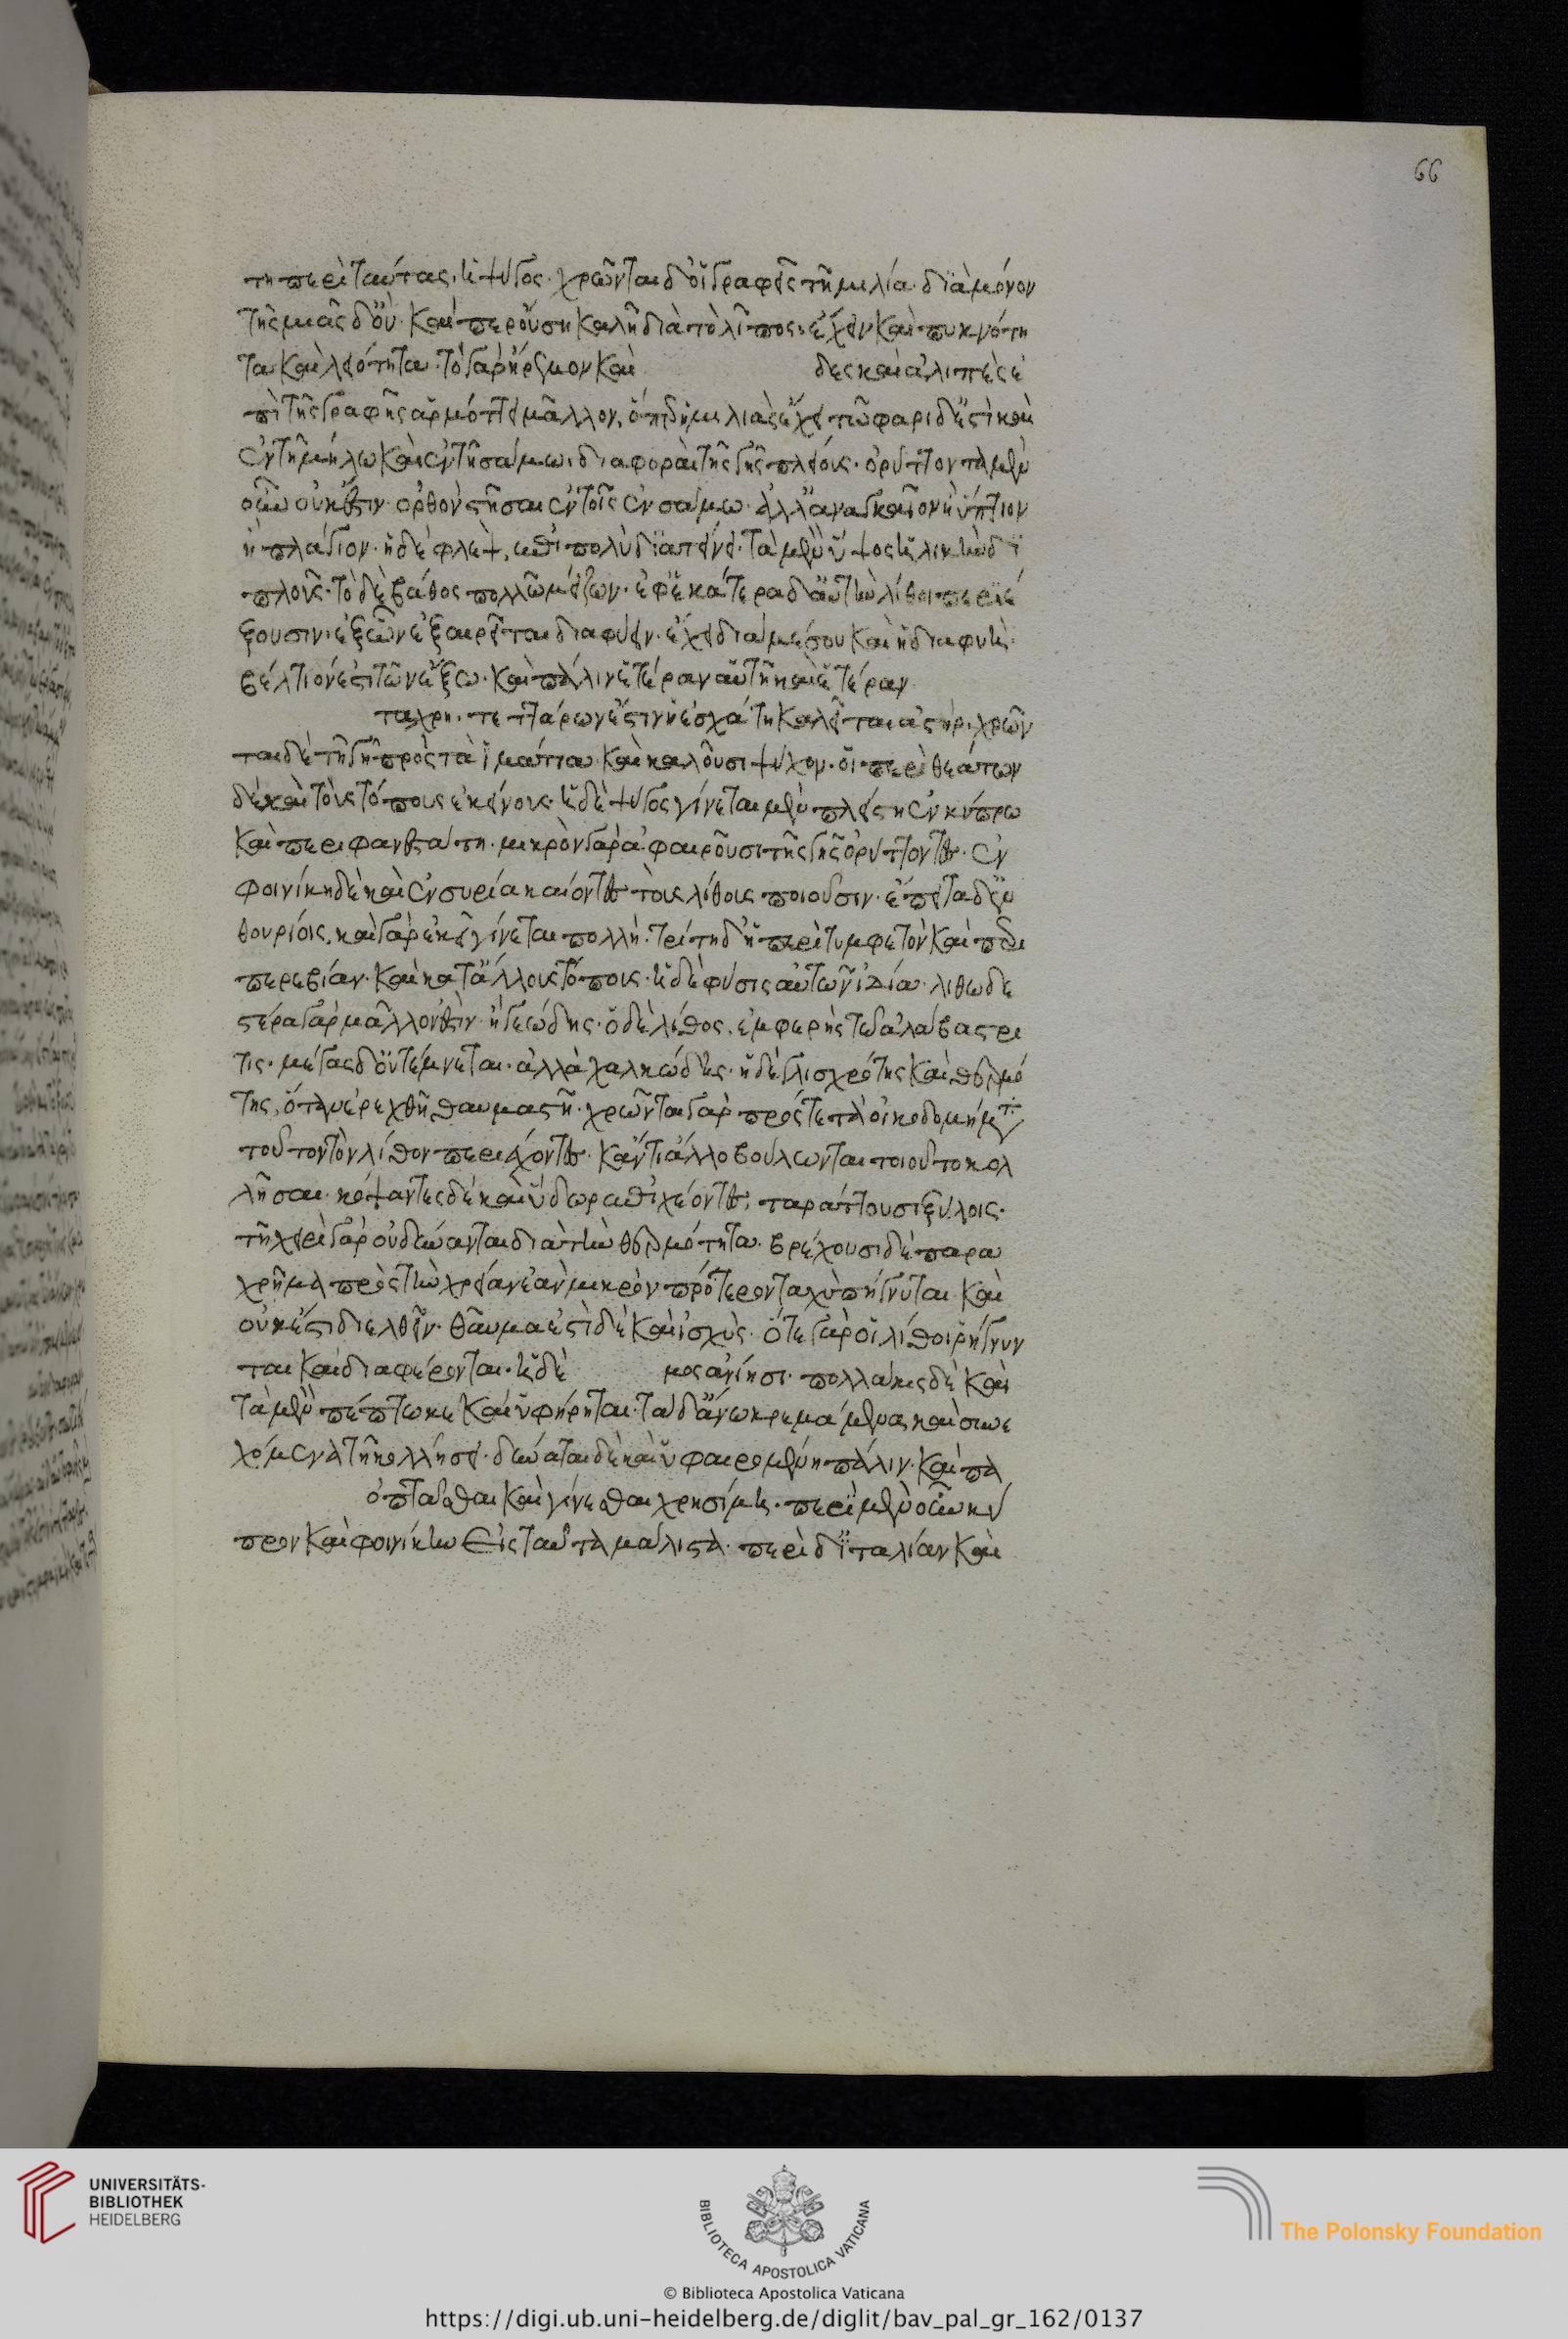 τη περὶ ταύτας, ἡ ψύγος· χρῶνται δ' οἱ γραφεῖς τῆ μιλία· διὰ μόνον
τῆς μιᾶς δ' οὐ· καὶ περ οὖση καλῆ διὰ τὸ λῖπος· ἔχειν καὶ πυκνότη
τα καὶ λειότητα· τὸ γὰρ ἤρεμον καὶ δες καὶ ἀλιπὲς ἐ
πὶ τῆς γραφῆς ἁρμόττει μᾶλλον, ὅπερ ἡ μιλιὰς ἔχει τῶ φαριδ' ἔστι καὶ
ἐν τῆ μήλω καὶ ἐν τῆ σάμω· διαφοραὶ τῆς γῆς πλείους· ὀρύττοντα μὲν
οὖν οὐκ ἔστιν ὀρθὸν στῆσαι ἐν τοῖς ἐν σάμω· ἀλλ' ἀναγκαῖον ἢ ὕπτιον
ἢ πλάγιον· ἡ δὲ φλὲψ, ἐπὶ πολὺ διατείνει· τὰ μὲν ὕψος ἡλίκην δί
πλους· τὸ δὲ βάθος πολλῶ μείζων· ἐφ' ἑκάτερα δ' αὐτὴν λίθοι περιέ
ξουσιν· ἐξ ὧν ἐξαιρεῖται διαφύειν· ἔχει διὰ μέσου καὶ ἡ διαφυὴ·
βέλτιόν ἐστι τῶν ἔξω· καὶ πάλιν ἑτέραν αὐτῆ καὶ ἑτέραν
ταχρη· τεττάρων ἐστὶν ἡ ἐσχάτη καλεῖται ἀστήρ· χρῶν
ται δὲ τῆ γῆ πρὸς τὰ ἱμάτια καὶ καλοῦσι ψυχον· οἱ περὶ θεάτων
δὲ καὶ τοὺς τόπους ἐκείνους· ἡ δὲ ψύγος γίνεται μὲν πλείστη ἐν κύπρω
καὶ περιφανεστάτη· μικρὸν γὰρ ἀφαιροῦσι τῆς γῆς ὀρύττοντες· ἐν
φοινίκη δὲ καὶ ἐν συρία καίοντες τοὺς λίθους ποιοῦσιν· ἔπειτα δ' ἐν
θουρίοις, καὶ γὰρ ἐκεῖ γίνεται πολλὴ· τρίτη δ' ἡ περὶ τυμφετὸν καὶ περὶ
περεβίαν· καὶ κατ' ἄλλους τόπους· ἡ δὲ φύσις αὐτῶν ἰδία· λιθωδε
στέρα γὰρ μᾶλλον ἐστὶν ἢ γεώδης· ὁ δὲ λίθος, ἐμφερὴς τῶ ἀλαβαστρί
τις· μέγας δ' οὐ τέμνεται· ἀλλὰ χαλικώδης· ἡ δὲ γλισχρότης καὶ θερμό
της, ὅταν βρεχθῆ θαυμαστῆ· χρῶνται γὰρ πρός τε τὰ οἰκοδομήματα
τουτον τὸν λίθον περιχέοντες· κἄν τι ἄλλο βούλωνται τοιοῦτο κολ
λῆσαι· κόψαντες δὲ καὶ ὕδωρ ἐπιχέοντες, ταράττουσι ξύλοις·
τῆ χειρὶ γὰρ οὐ δύνανται διὰ τὴν θερμότητα· βρέχουσι δὲ παρα
χρῆμα πρὸς τὴν χρείαν ἐὰν μικρὸν πρότερον ταχὺ πήγνυται καὶ
οὐκ ἔστι διελθεῖν· θαῦμα ἐστὶ δὲ καὶ ἰσχὺς· ὅτε γὰρ οἱ λίθοι ῥήγνυν
ται καὶ διαφέρονται· ἡ δὲ μος ἀνίησι· πολλάκις δὲ καὶ
τὰ μὲν πέπτωκε καὶ ὑφήρηται· τὰ δ' ἄνω κρεμάμενα καὶ συνε
χόμενα τῆ κολλήσει· δύναται δὲ καὶ ὑφαιρομένη πάλιν· καὶ πα
ὀπτᾶσθαι καὶ γίνεσθαι χρησίμη· περὶ μὲν οὖν κύ
προν καὶ φοινίκην εἰς ταῦτα μάλιστα· περὶ δ' ἰταλίαν καὶ
66
UNIVERSITÄTS-
BIBLIOTHEK
HEIDELBERG
BIBLIOTECA APOSTOLICA VATICANA
The Polonsky Foundation
© Biblioteca Apostolica Vaticana
https://digi.ub.uni-heidelberg.de/diglit/bav_pal_gr_162/0137